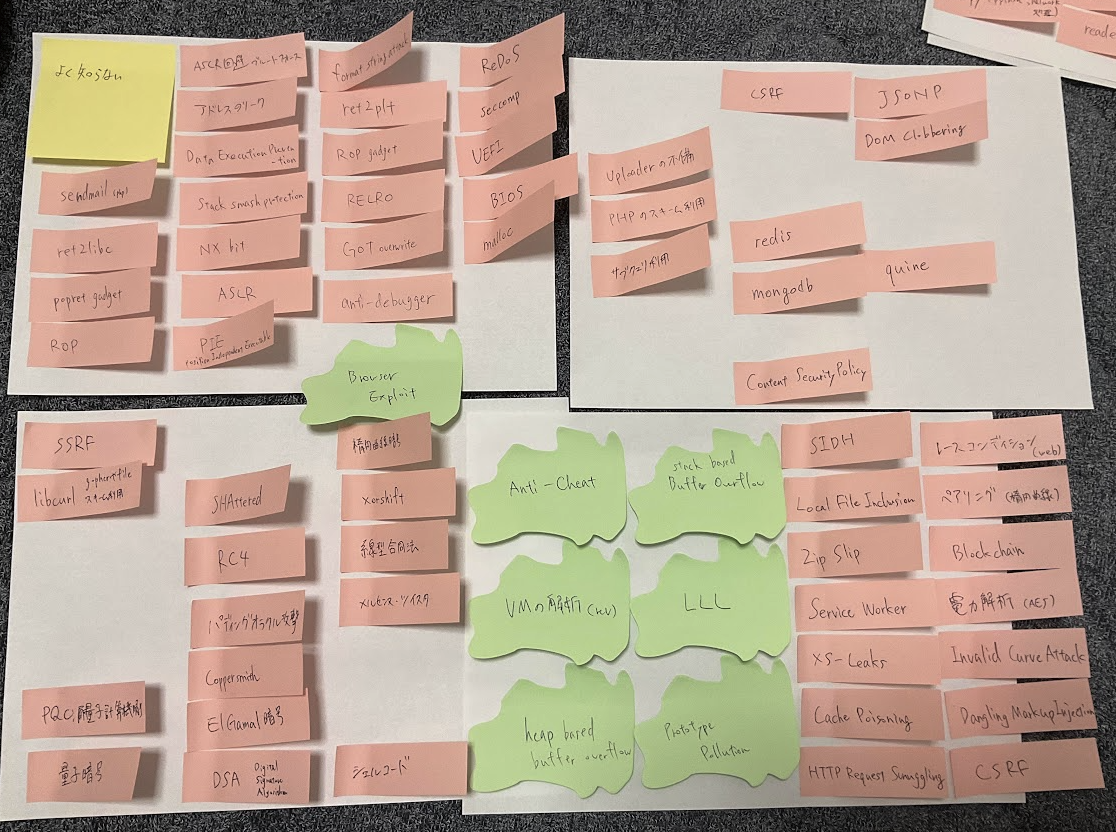 よく知らない
sendmail (php)
ret2libc
popret gadget
ROP
ASCR回避 ブルートフォース
アドレスリーク
Data Execution Preven
-tion
Stack smash protection
NX bit
ASCR
PIE
Position Independent Executable
format string attack
ret2plt
ROP gadget
RELRO
GOT overwrite
anti-debugger
ReDoS
Seccomp
UEFI
BIOS
malloc
Browser
Exploit
Uploaderの不備
PHPのスキーム利用
サブクエリ利用
CSRF
redis
mongodb
Content Security Policy
JSONP
DOM Clobbering
quine
reade
SSRF
libcurl gopherやfile
スキーム利用
PQC
量子暗号
SHAttered
RC4
パディングオラクル攻撃
Coppersmith
ElGamal暗号
DSA Digital
Signature
Algorithm
楕円曲線暗号
xorshift
線型合同法
メルセンヌ・ツイスタ
シェルコード
Anti-Cheat
VMの解析 (rev)
heap based
buffer overflow
stack based
Buffer Overflow
LLL
Prototype
Pollution
SIDH
Local File Inclusion
Zip Slip
Service Worker
XS-Leaks
Cache Poisoning
HTTP Request Smuggling
レースコンディション
(web)
ペアリング (楕円曲線)
Blockchain
電力解析 (AES)
Invalid Curve Attack
Dangling Markup Injection
CSRF